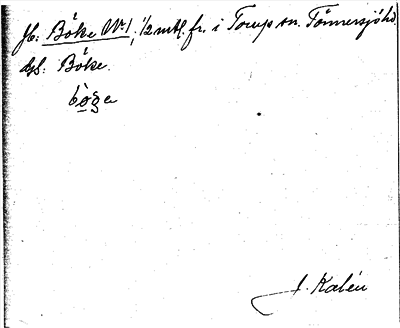 Jb: Böke No 1, 1/2 mtl. fr. i Torup sn. Tönnersjö hd.
Gs: Böke.
bö̀ge
J. Kalén